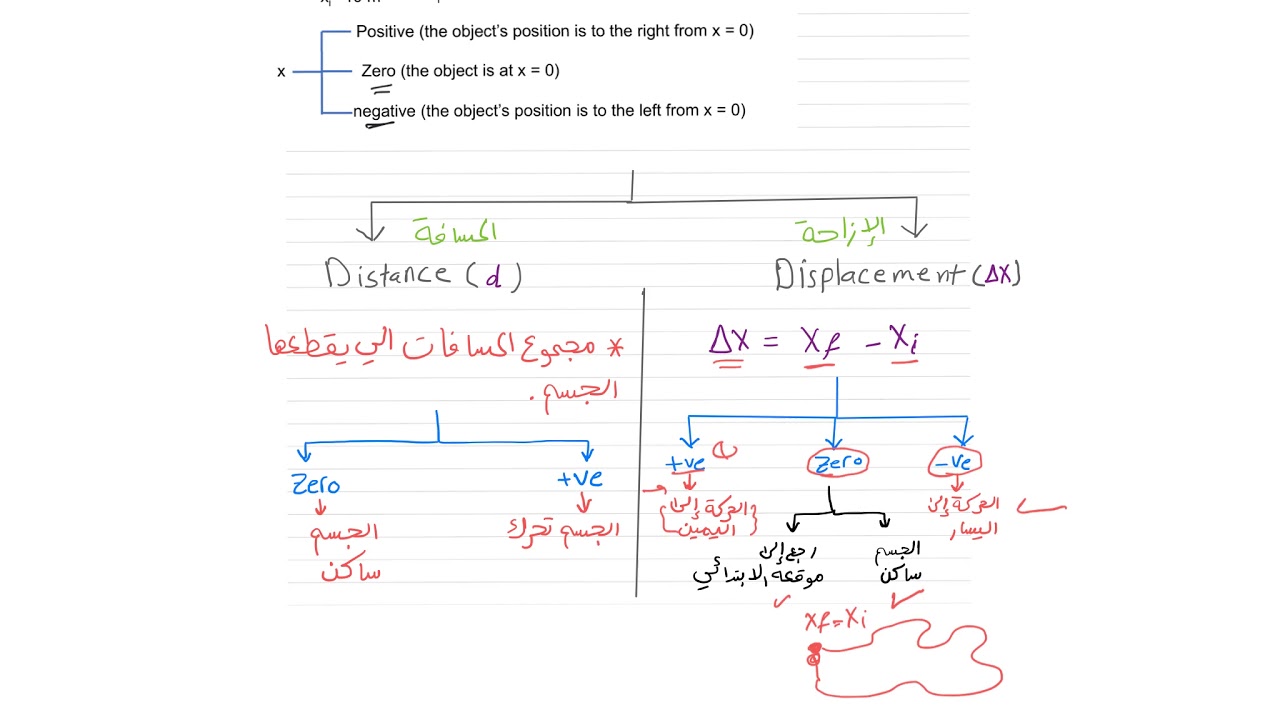 Positive (the object's position is to the right from x = 0)
x
Zero (the object is at x = 0)
negative (the object's position is to the left from x = 0)
المسافة
الإزاحة
Distance (d)
Displacement (Δx)
* مجموع المسافات الي يقطعها
الجسم .
Δx = xf - xi
Zero
+ve
الجسم
ساكن
الجسم تحرك
+ve
Zero
-ve
الحركة إلى
اليمين
الحركة إلى
اليسار
رجع إلى
موقعه الابتدائي
الجسم
ساكن
xf = xi